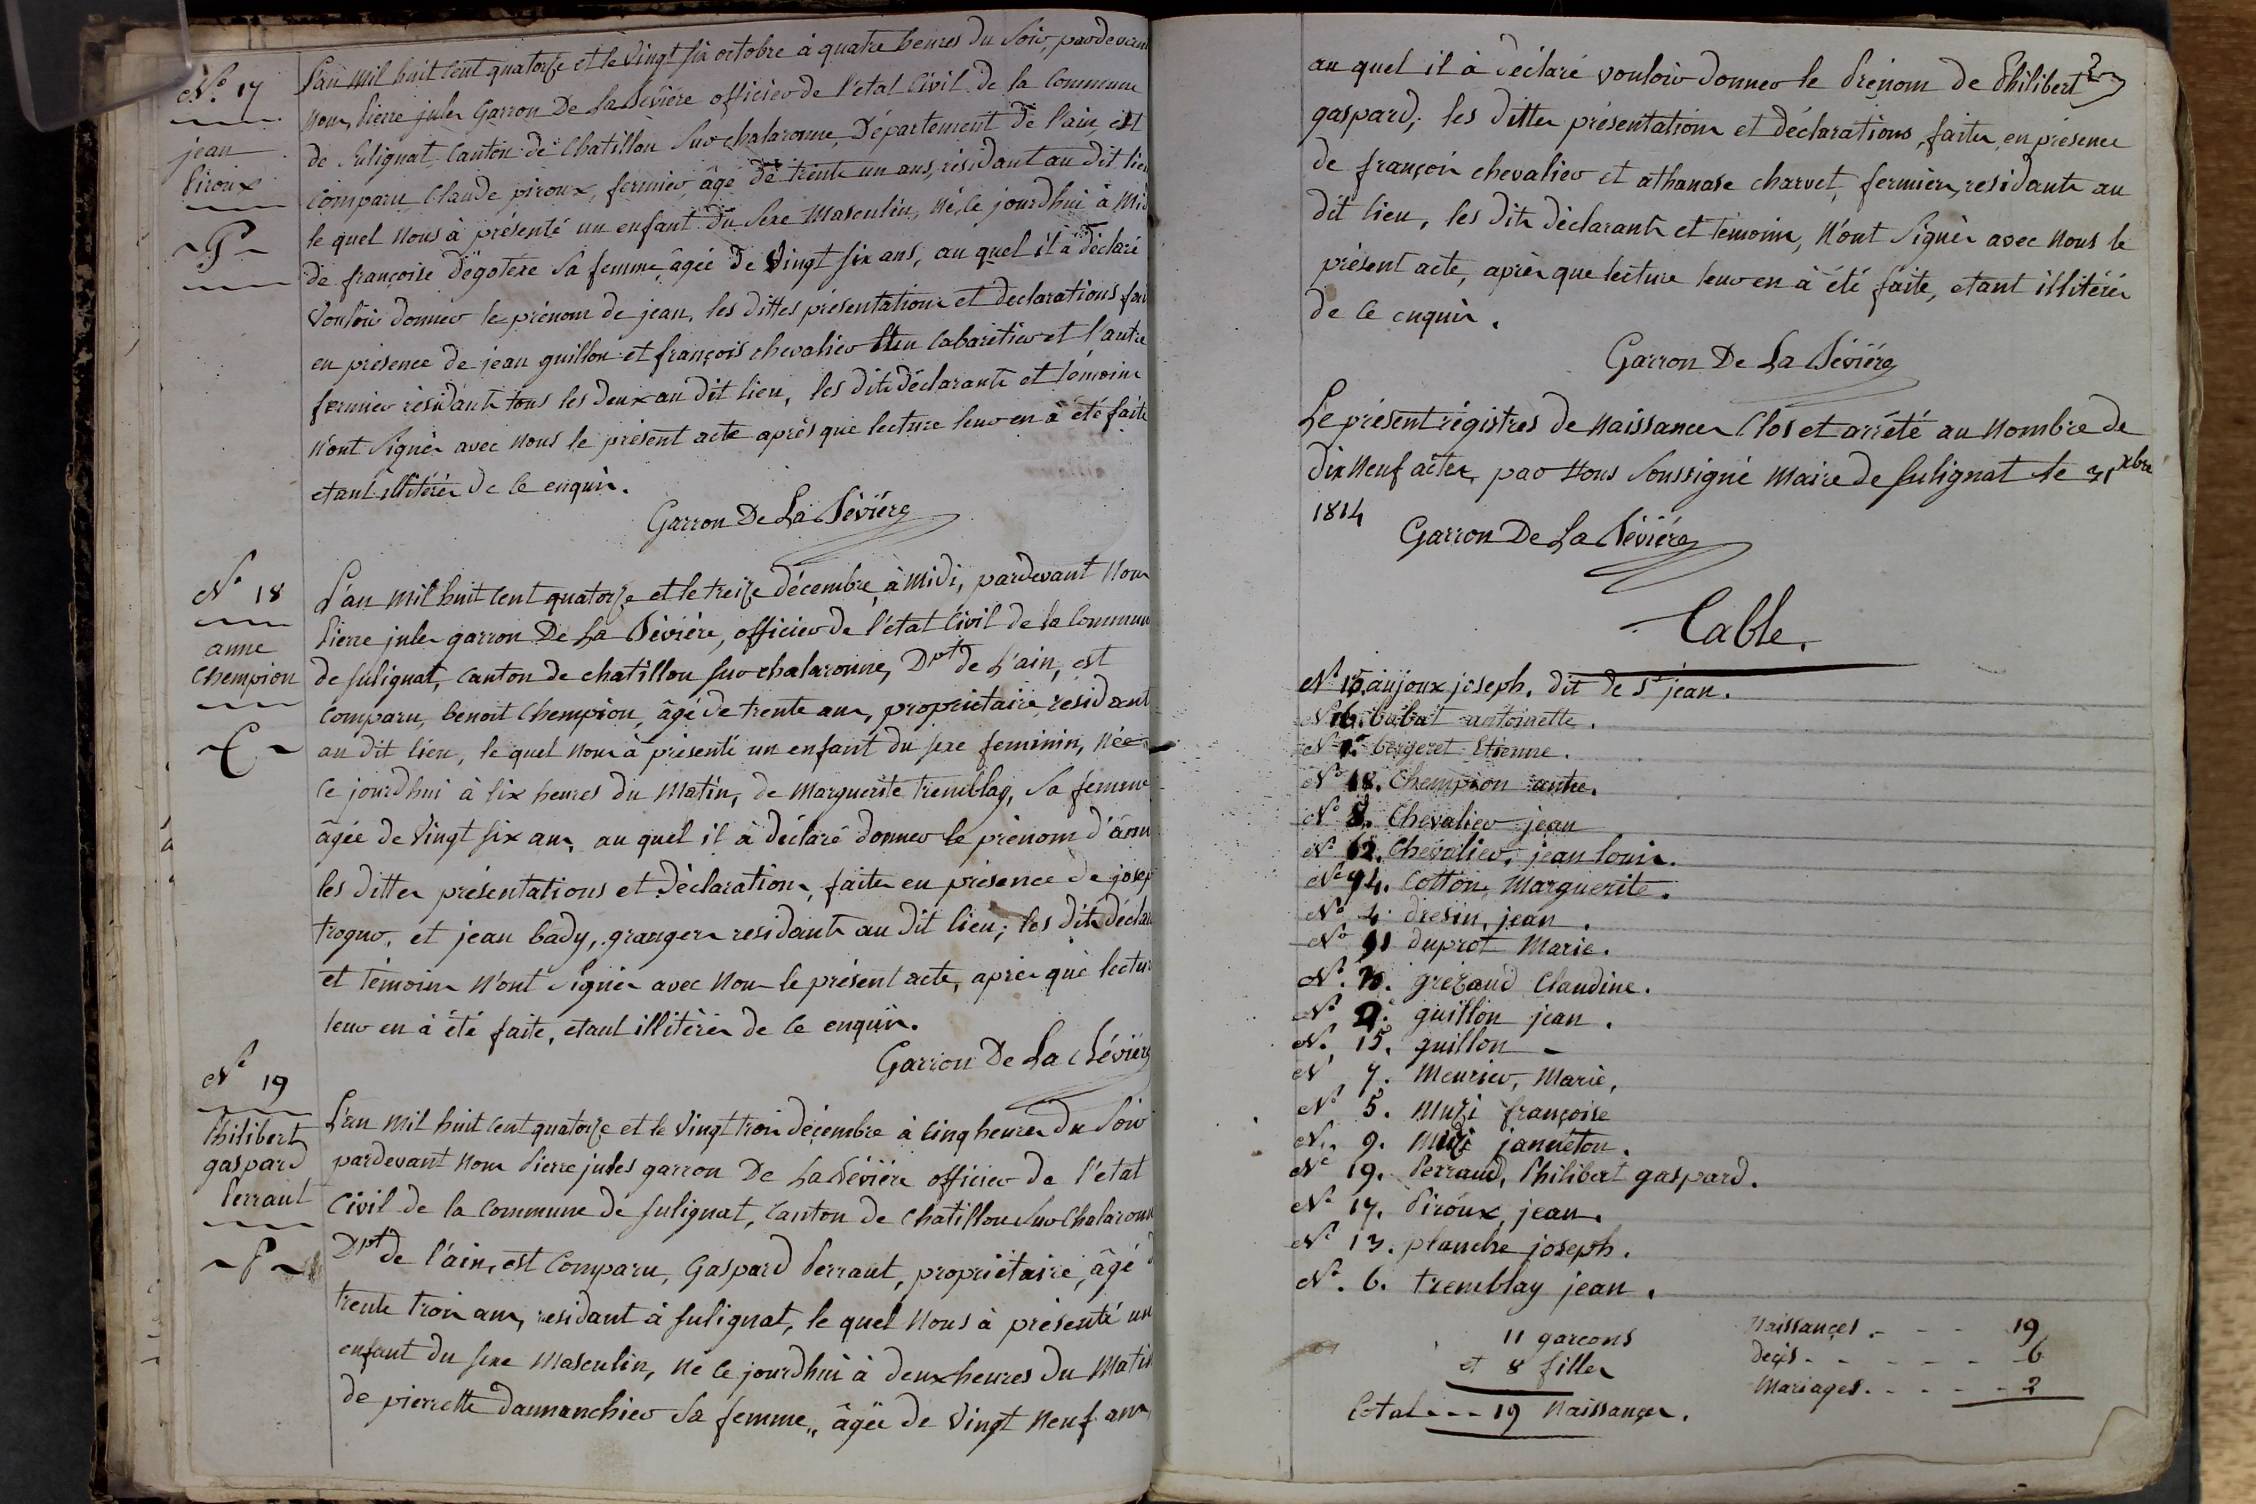 N.o 17
jean
Piroux
P
L'an mil huit cent quatorze et le vingt six octobre à quatre heures du soir, pardevant
nous, Pierre jules Garron De La Bévière officier de l'état Civil de la Commune
de Sulignat Canton de Chatillon sur chalaronne, Département de l'ain, est
comparu Claude piroux, fermier, âgé de trente un ans, résidant au dit lieu
le quel nous à présenté un enfant du sexe Masculin, né, le jourdhui à Midi
de françoise Dégotexe sa femme, âgée de Vingt six ans, au quel il à déclaré
Vouloir donner le prénom de jean, les dittes présentations et declarations fai
en présence de jean guillon et françois chevalier l'un Cabaretier et l'autre
fermier résidants tous les deux au dit lieu, les dits déclarants et témoins
n'ont signés avec nous le présent acte après que lecture leur en à été faite
etant illitérés de ce enquis.
Garron De La Bévière
N.o 18
anne
Chempion
C
L'an mil huit cent quatorze et le treize décembre, à midi, pardevant nous
Pierre jules garron De La Bévière, officier de l'état Civil de la Commune
de sulignat, canton de chatillon sur chalaronne, Dpt de L'ain, est
comparu, benoit Chempion, âgé de trente ans, propriétaire, résidant
au dit lieu, le quel nous à présenté un enfant du sexe feminin, née
le jourdhui à six heures du matin, de Marguerite tremblay, sa femme
âgée de Vingt six ans, au quel il à déclaré donner le prénom d'ann
les dittes présentations et déclarations, faites en présence de josep
trognr, et jean bady, grangers residants au dit lieu; les dits déclar
et témoins n'ont signés avec nous le présent acte, après que lectur
leur en à été faite, etant illitérés de ce enquis.
Garron De La Bévière
N.o 19
Philibert
gaspard
Perraut
P
L'an mil huit cent quatorze et le vingt trois décembre à cinq heures du soir
pardevant nous Pierre jules garron De La Bévière officier de l'état
Civil de la Commune de sulignat, Canton de Chatillon sur Chalaronn
Dpt de l'ain, est comparu, Gaspard Perraut, propriétaire, âgé d
trente trois ans, residant à sulignat, le quel nous à présenté un
enfant du sexe Masculin, né le jourdhui à deux heures du Matin
de pierrette dannanchier sa femme, âgée de Vingt neuf ans,
au quel il à déclaré vouloir donner le Prénom de Philibert
gaspard; les dittes présentations et déclarations, faites, en présence
de françois chevalier et athanase charvet, fermiers, residants au
dit lieu, les dits déclarants et témoins, n'ont signés avec nous le
présent acte, après que lecture leur en à été faite, etant illitérés
de ce enquis.
Garron De La Bévière
Le présent régistres de naissances Clos et arrété au nombre de
dix neuf actes, par nous soussigné maire de sulignat le 31 xbre
1814
Garron De La Bévière
Table.
N.o 10. aujoux joseph. dit de St jean.
N.o 16. bubat antoinette.
N.o 1. bergeret Etienne.
N.o 18. Chempion anne.
N.o 8. Chevalier jean
N.o 12. Chevalier, jean louis.
N.o 14. Cotton, Marguerite.
N.o 4. dresin, jean.
N.o 11 duprot Marie.
N.o 3. grézaud Claudine.
N.o 2. guillon jean.
N.o 15. guillon -
N.o 7. Meurier, Marie.
N.o 5. Muzi françoise
N.o 9. Muzi janneton.
N.o 19. Perraud, Philibert gaspard.
N.o 17. Piroux, jean.
N.o 13. planche joseph.
N.o 6. tremblay jean.
11 garcons
et 8 filles
Total --- 19 Naissances.
Naissances. - - - 19
Decès - - - - - - 6
Mariages. - - - - 2